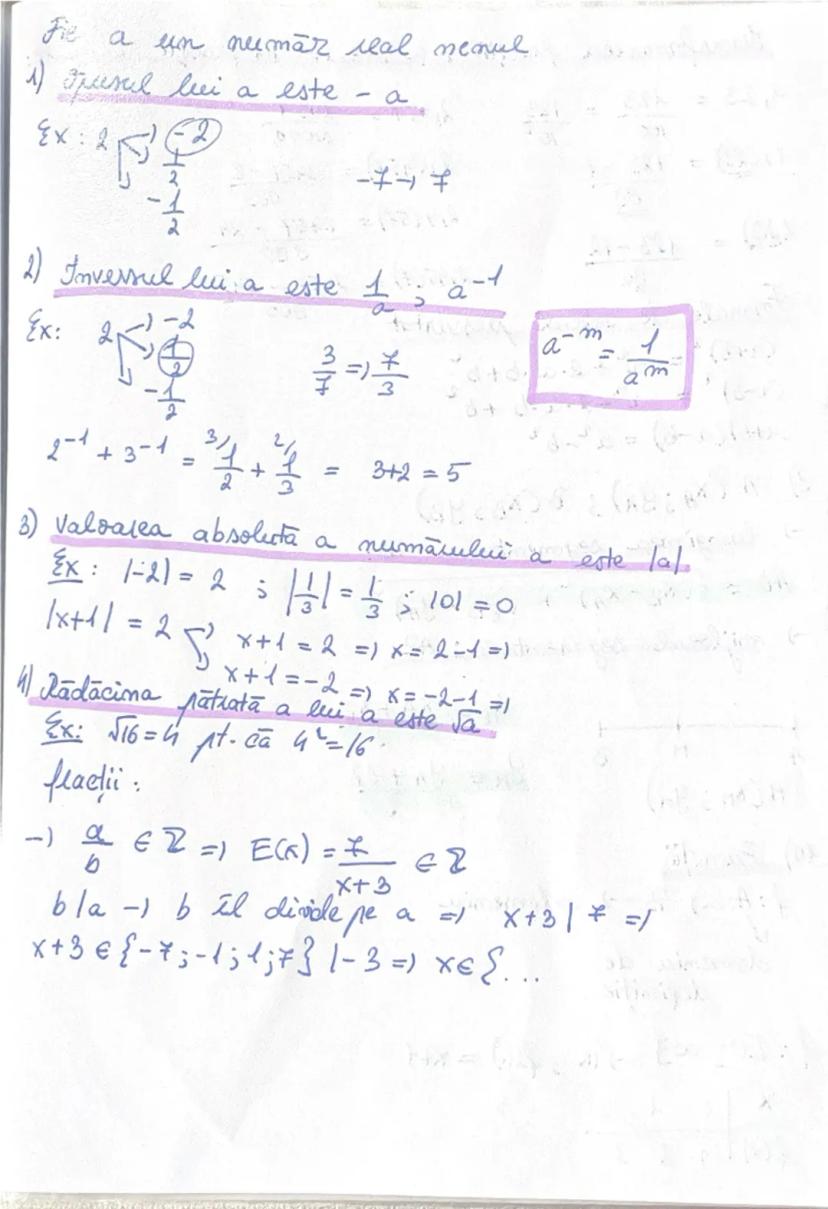 Fie a un număr real nenul
1) Opusul lui a este - a
Ex : 2 → -2
1/2
-1/2
-7 → 7
2) Inversul lui a este 1/a , a⁻¹
Ex: 2 → -2
1/2
-1/2
3/7 => 7/3
a⁻ᵐ = 1/aᵐ
2⁻¹ + 3⁻¹ = ³⁾1/2 + ²⁾1/3 = 3+2 = 5
3) Valoarea absolută a numărului a este |a|
Ex : |-2| = 2 ; |1/3| = 1/3 ; |0| = 0
|x+1| = 2 → x+1 = 2 => x = 2-1 =>
→ x+1 = -2 => x = -2-1 =>
4) Rădăcina pătrată a lui a este √a
Ex: √16 = 4 pt. că 4² = 16.
fracții :
→ a/b ∈ ℤ => E(x) = 7/(x+3) ∈ ℤ
b | a → b îl divide pe a => x+3 | 7 =>
x+3 ∈ {-7 ; -1 ; 1 ; 7} | -3 => x ∈ { ...